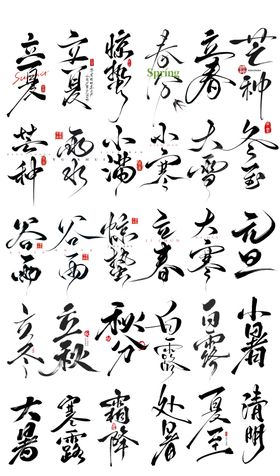 立夏 立夏 惊蛰 春分 立春 芒种
Summer
Spring
芒种 雨水 小满 小寒 大雪 冬至
谷雨 谷雨 惊蛰 立春 大寒 元旦
立冬 立秋 秋分 白露 白露 小暑
大暑 寒露 霜降 处暑 夏至 清明